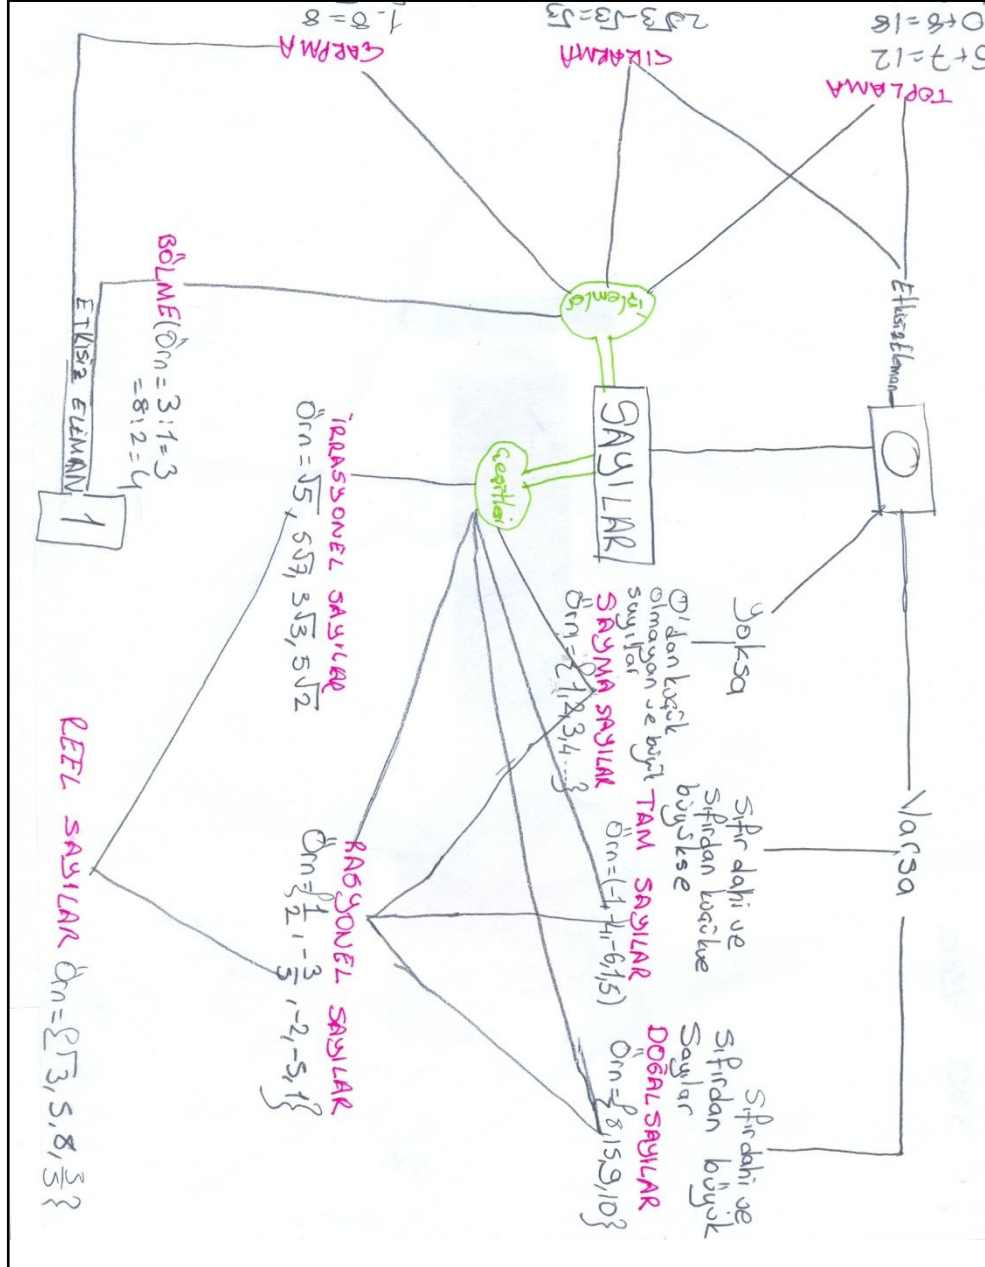 5+7=12
TOPLAMA
2√3-√3=√3
ÇIKARMA
1.8=8
ÇARPMA
Etkisiz Eleman
0
işlemler
BÖLME (Örn=3:1=3
=8:2=4
ETKİSİZ ELEMAN
1
SAYILAR
Çeşitleri
Yoksa
Varsa
0'dan küçük
olmayan ve büyük
sayılar
SAYMA SAYILAR
Örn={1,2,3,4...}
Sıfır dahi ve
Sıfırdan küçük ve
büyükse
TAM SAYILAR
Örn=(-1,-4,-6,1,5)
Sıfır dahi ve
Sıfırdan büyük
Sayılar
DOĞAL SAYILAR
Örn={8,15,9,10}
İRRASYONEL SAYILAR
Örn=√5, 5√7, 3√3, 5√2
RASYONEL SAYILAR
Örn={1/2, -3/5, -2, -5, 1}
REEL SAYILAR Örn={√3, 5, 8, 3/5}